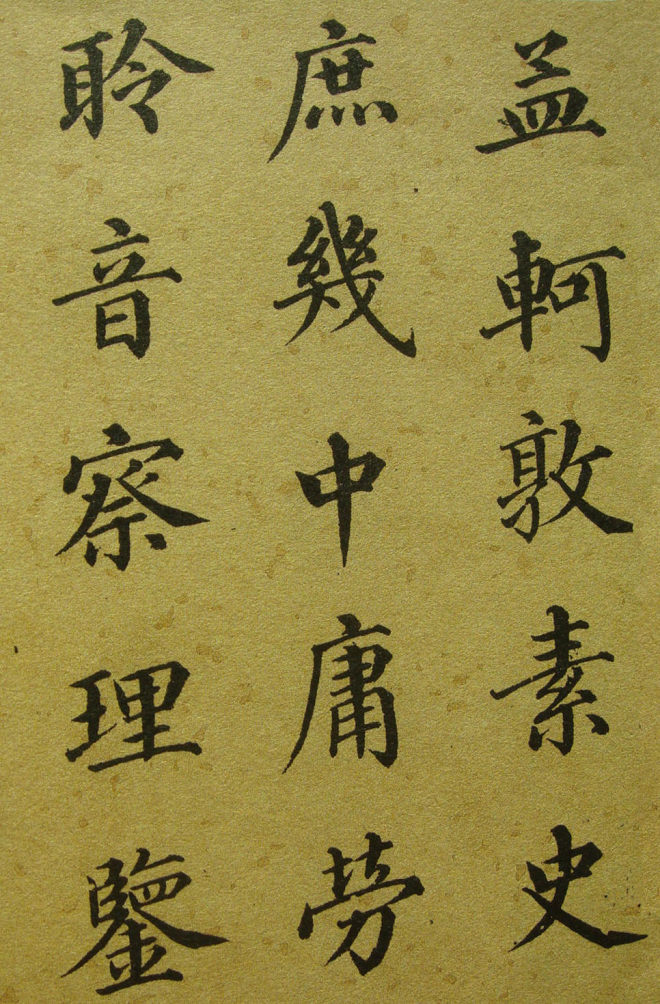 孟軻敦素史
庶幾中庸劳
聆音察理鑒